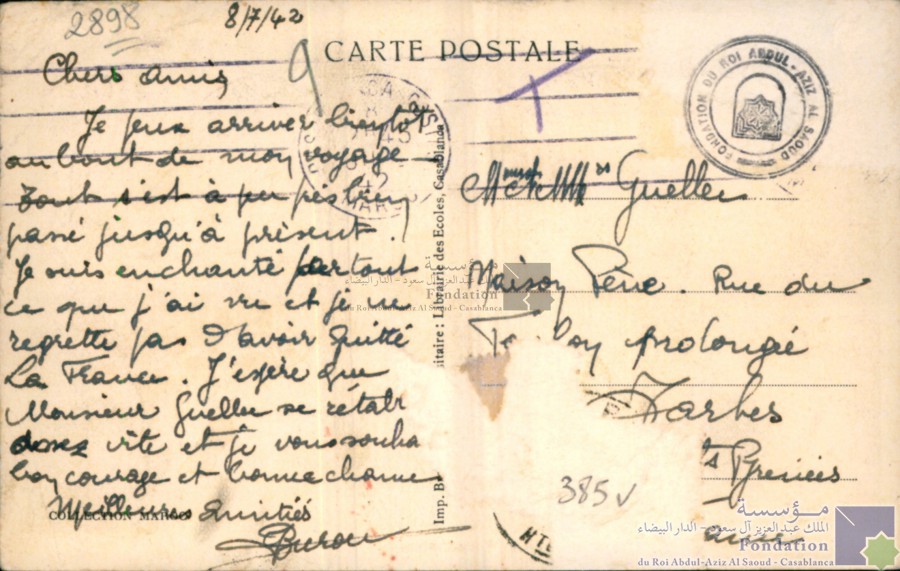 2898
8/7/42
9
CARTE POSTALE
T
FONDATION DU ROI ABDUL-AZIZ AL SAOUD
Chers amis
Je peux arriver bientôt
au bout de mon voyage
Tout s'est à peu près bien
passé jusqu'à présent.
Je suis enchanté par tout
ce que j'ai vu et je ne
regrette pas d'avoir quitté
La France. J'espère que
Monsieur Gueller se rétabl
assez vite et je vous souha
bon courage et bonne chance
Meilleures amitiés
COLLECTION MAROC
Imp. B
itaire ; Librairie des Ecoles, Casablanca
Gueller
Maison Pène. Rue du
prolongé
Tarbes
tes Pyrénées
385
مؤسسة
الملك عبد العزيز آل سعود - الدار البيضاء
Fondation
du Roi Abdul-Aziz Al Saoud - Casablanca
مؤسسة
الملك عبد العزيز آل سعود - الدار البيضاء
Fondation
du Roi Abdul-Aziz Al Saoud - Casablanca